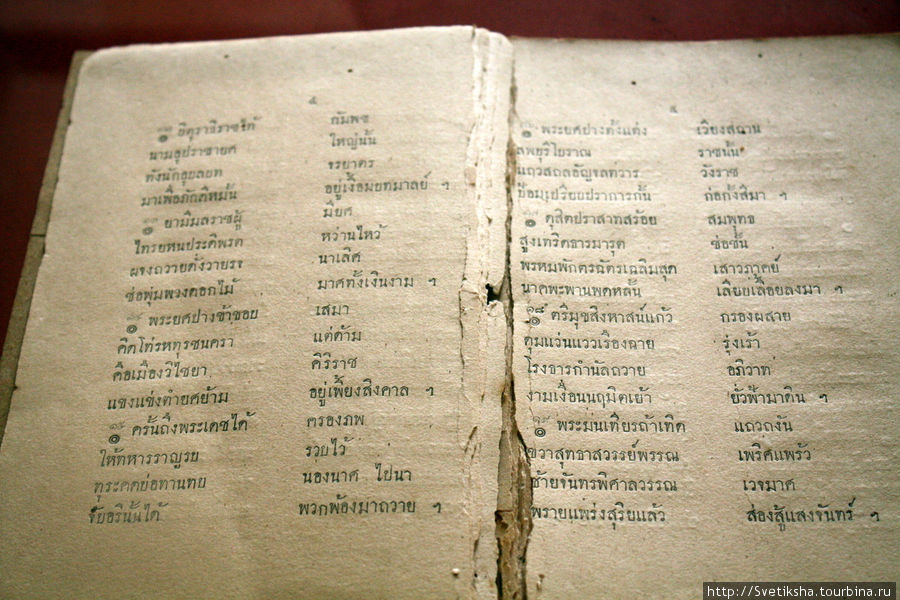 ๔
ยิตุราธิราชได้ กัมพช
นามอุปราชายศ ใหญ่นั้น
ทั้งนักอุยลยท จรยาตร
มาเพื่อภักดิหมั้น อยู่เงื้อมยทมาลย์ ฯ
ยามิมลราชผู้ มียศ
ไทรยหนประดิพรต หว่านไหว้
ผจงถวายดั่งวายรจ นาเลิศ
ช่อพุ่มพวงดอกไม้ มาศทั้งเงินงาม ฯ
พระยศปางข้าขอบ เสมา
คิดโทร่หทุรชนครา แต่ด้าม
คือเมืองวิไชยา คิริราช
แขงแข่งทำยศย้าม อยู่เพี้ยงสิงคาล ฯ
ครั้นถึงพระเดชได้ ครองภพ
ให้ทหารราญรบ รวบไว้
ทุระคตย่อทานทบ นองนาศ ไปนา
จับอรินั้นได้ พวกพ้องมาถวาย ฯ
๕
พระยศปางตั้งแต่ง เวียงสถาน
ลพบุริโยราณ ราชนั้น
แถวสถลธัญจลทวาร วังราช
ป้อมเปรียบปราการกั้น ก่อกั้งสิมา ฯ
ดุสิตปราสาทสร้อย สมพุทธ
สูงเทริดธารมารุต ช่อชั้น
พรหมพักตรฉัตรเฉลิมสุด เสาวภาคย์
นาคพะพานพดหลั้น เลียบเลื้อยลงมา ฯ
ตรีมุขสิงหาสน์แก้ว กรองผสาย
ดุมแว่นแววเรืองฉาย รุ่งเร้า
โรงธารกำนัลถวาย อภิวาท
งามเงื่อนนฤมิตเย้า ยั่วฟ้ามาดิน ฯ
พระมนเทียรถ้าเทิด แถวถงัน
ขวาสุทธาสวรรย์พรรณ เพริศแพร้ว
ซ้ายจันทรพิศาลวรรณ เวจมาศ
พรายแพร่งสุริยแล้ว ส่องสู้แสงจันทร์ ฯ
http://Svetiksha.tourbina.ru